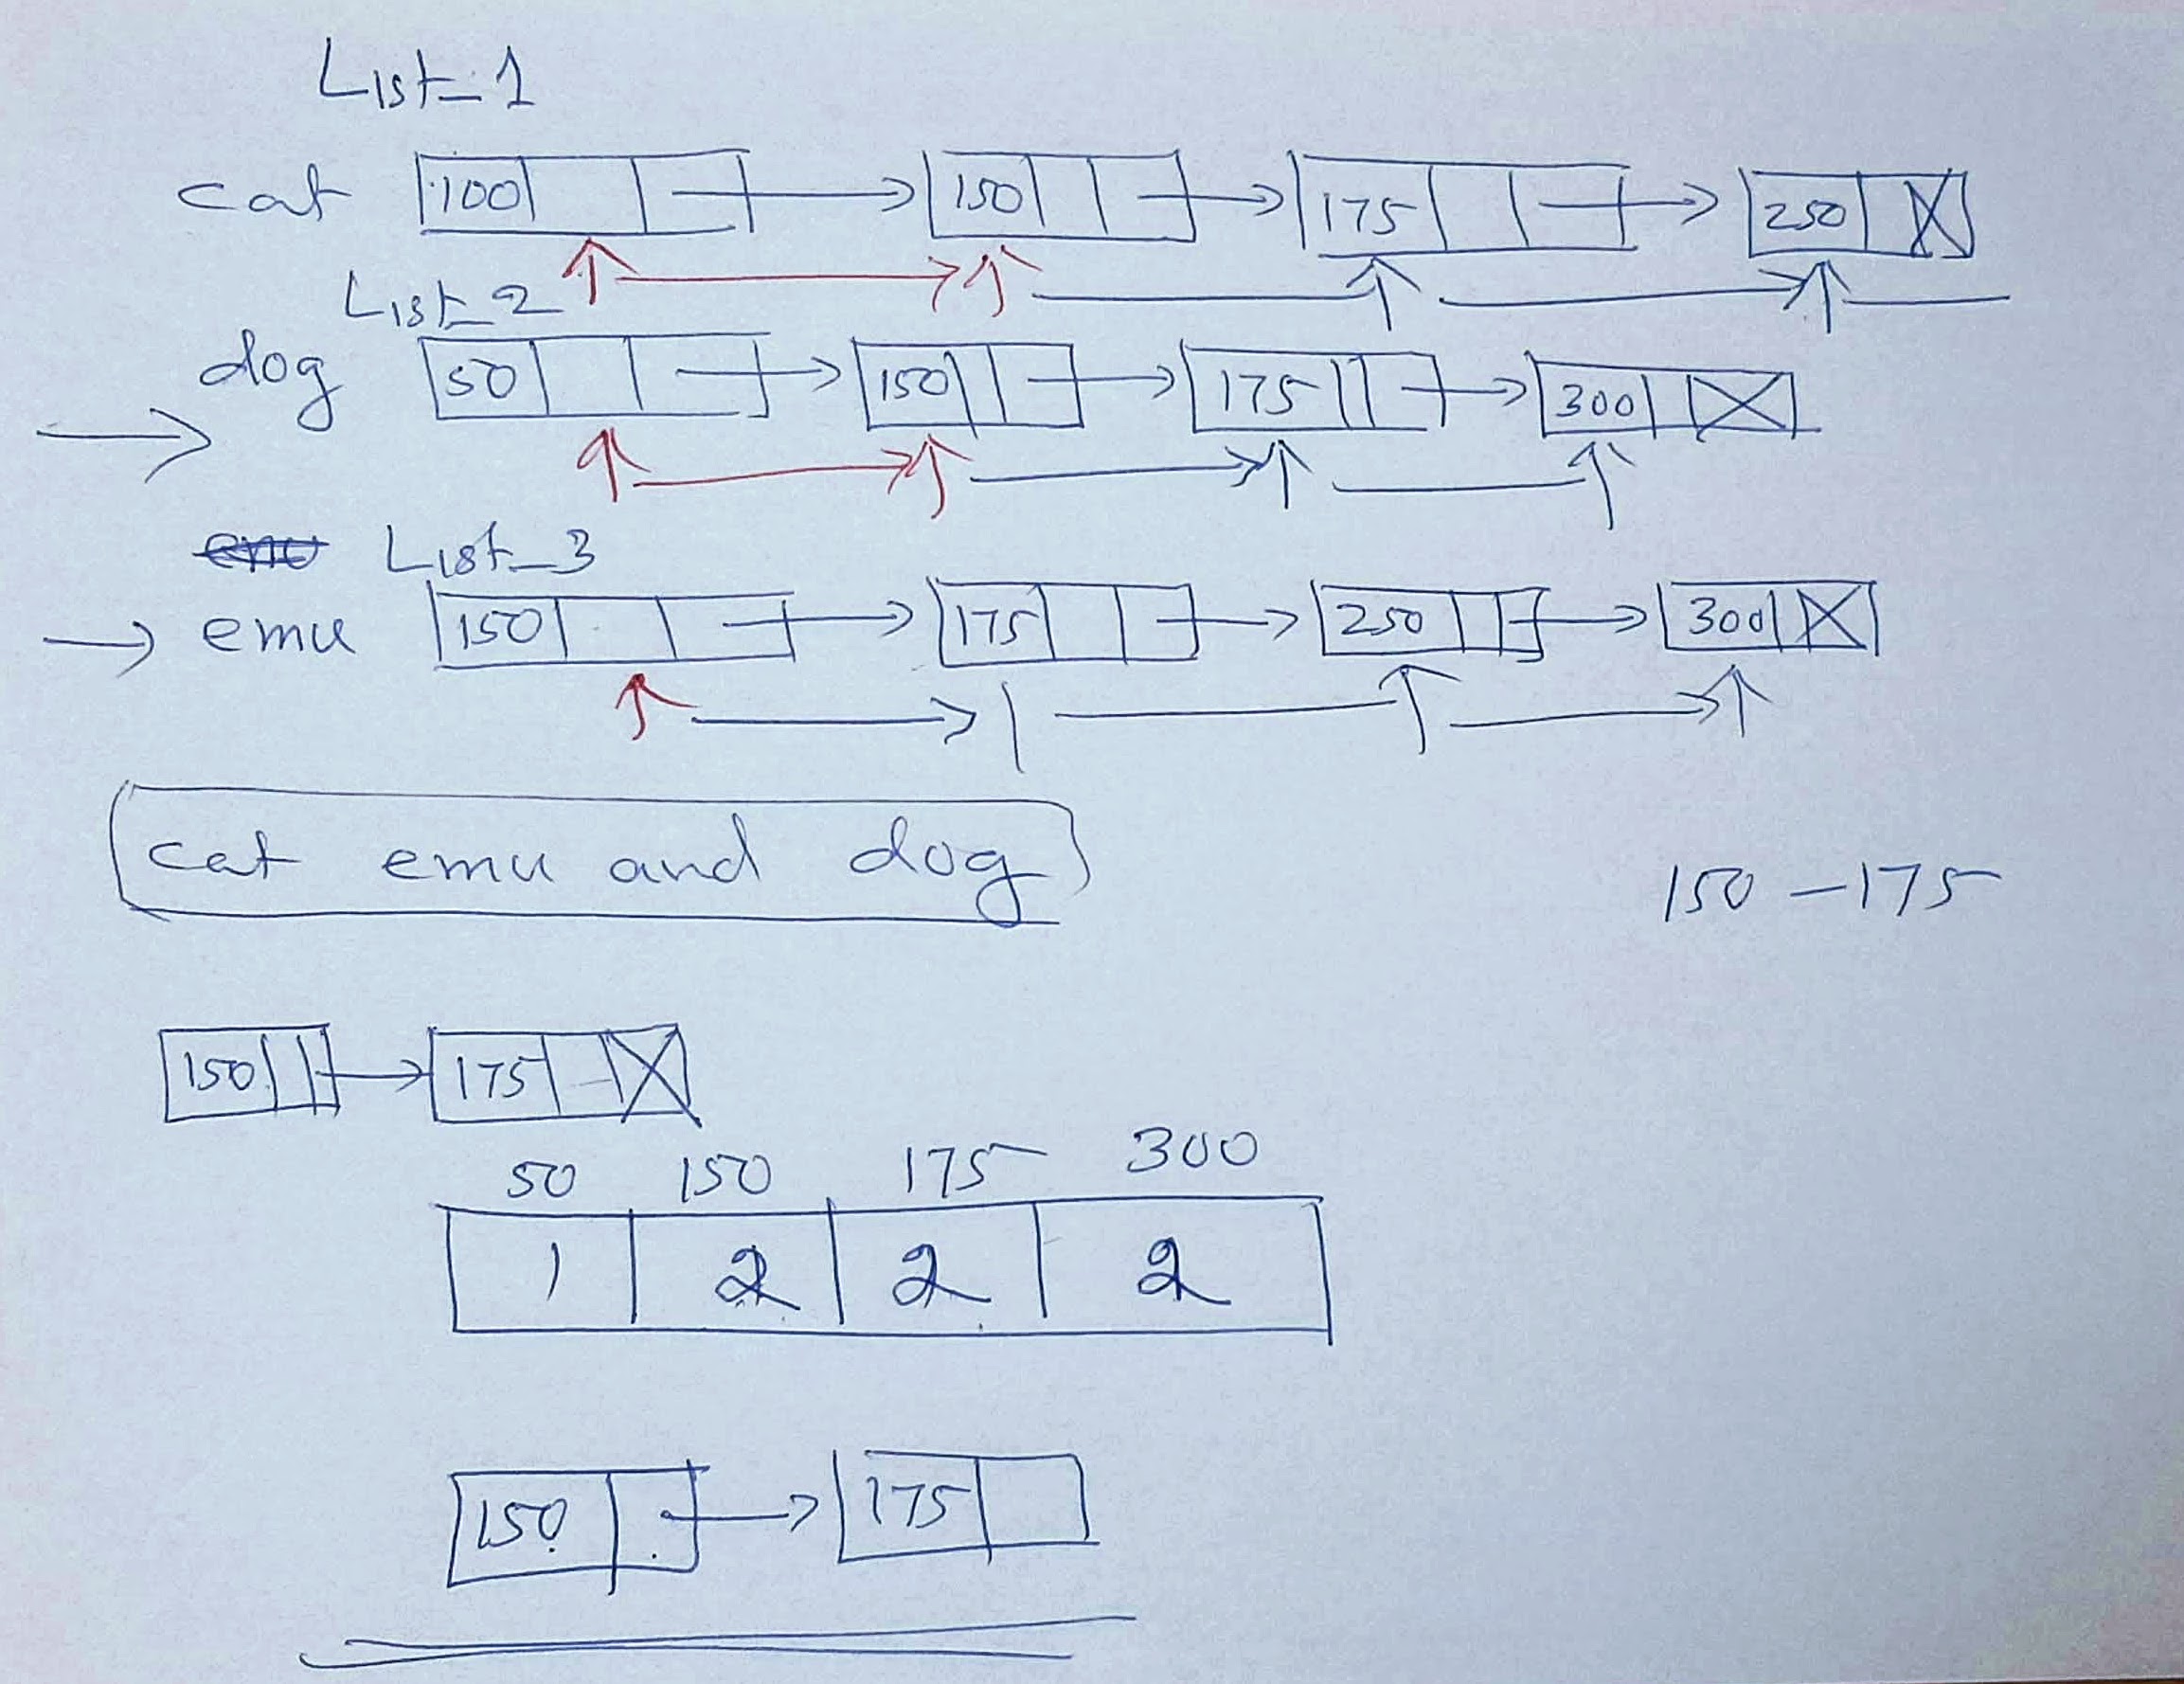 List_1
cat 100 150 175 250
List_2
dog 50 150 175 300
List_3
emu 150 175 250 300
cat emu and dog
150 - 175
150 175
50 150 175 300
1 2 2 2
150 175